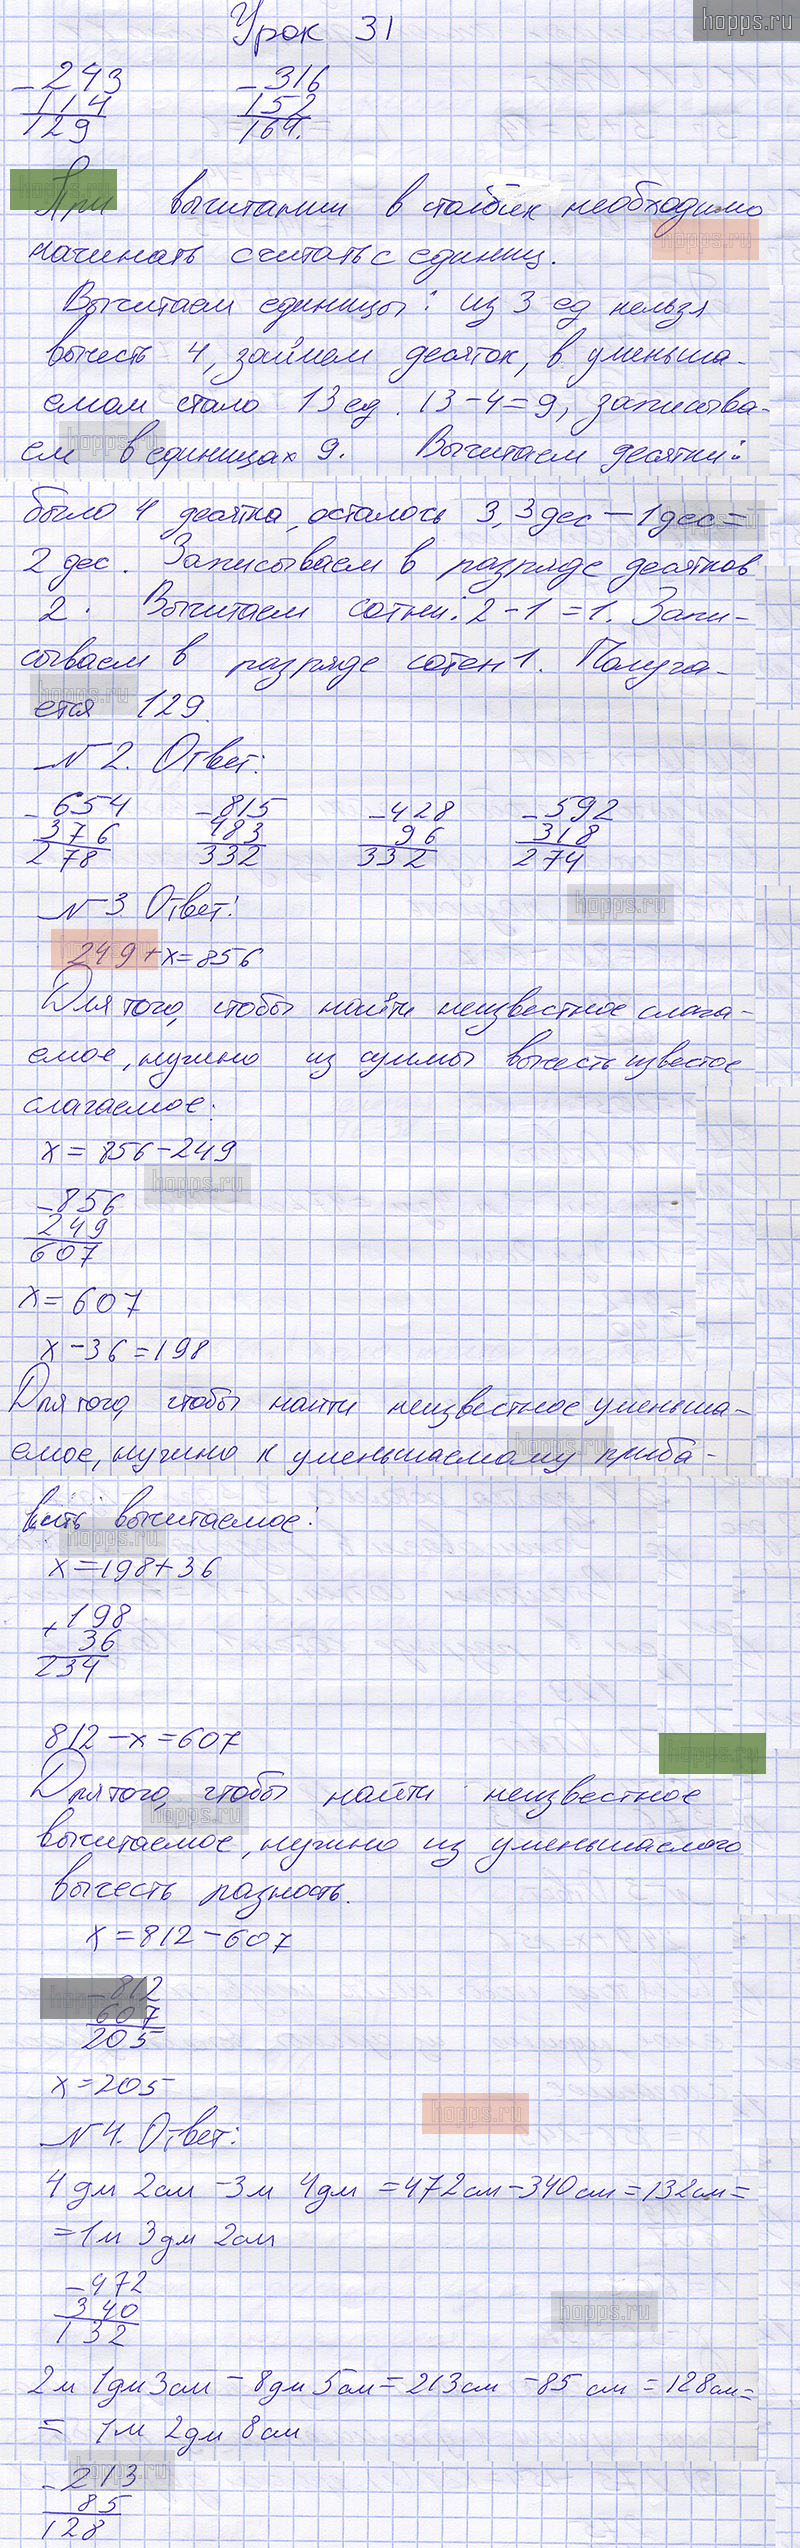 hopps.ru
Урок 31
- 243 - 316
114 152
129 164.
hopps.ru
При вычитании в столбик необходимо
hopps.ru
начинать считать с единиц.
Вычитаем единицы: из 3 ед нельзя
вычесть 4, займем десяток, в уменьша-
емом стало 13 ед. 13-4=9, записыва-
hopps.ru
ем в единицах 9. Вычитаем десятки:
было 4 десятка, осталось 3, 3дес - 1дес =
hopps.ru
2 дес. Записываем в разряде десятков
2. Вычитаем сотни: 2-1=1. Запи-
сываем в разряде сотен 1. Получа-
hopps.ru
ется 129.
N 2. Ответ:
- 654 - 815 - 428 - 592
376 483 96 318
278 332 332 274
N 3 Ответ:
hopps.ru
249+x=856
Для того, чтобы найти неизвестное слага-
емое, нужно из суммы вычесть известое
слагаемое:
x=856-249
hopps.ru
- 856
249
607
x=607
x-36=198
Для того, чтобы найти неизвестное уменьша-
емое, нужно к уменьшаемому приба-
hopps.ru
вить вычитаемое:
hopps.ru
x=198+36
+ 198
36
234
812-x=607
hopps.ru
Для того, чтобы найти неизвестное
hopps.ru
вычитаемое, нужно из уменьшаемого
вычесть разность.
x=812-607
hopps.ru
- 812
607
205
x=205
hopps.ru
N 4. Ответ:
4 дм 2см - 3м 4дм = 472см - 340см = 132см =
= 1м 3 дм 2см
- 472
340
132
hopps.ru
2м 1дм 3см - 8дм 5см = 213см - 85 см = 128см =
= 1м 2дм 8см
hopps.ru
- 213
85
128